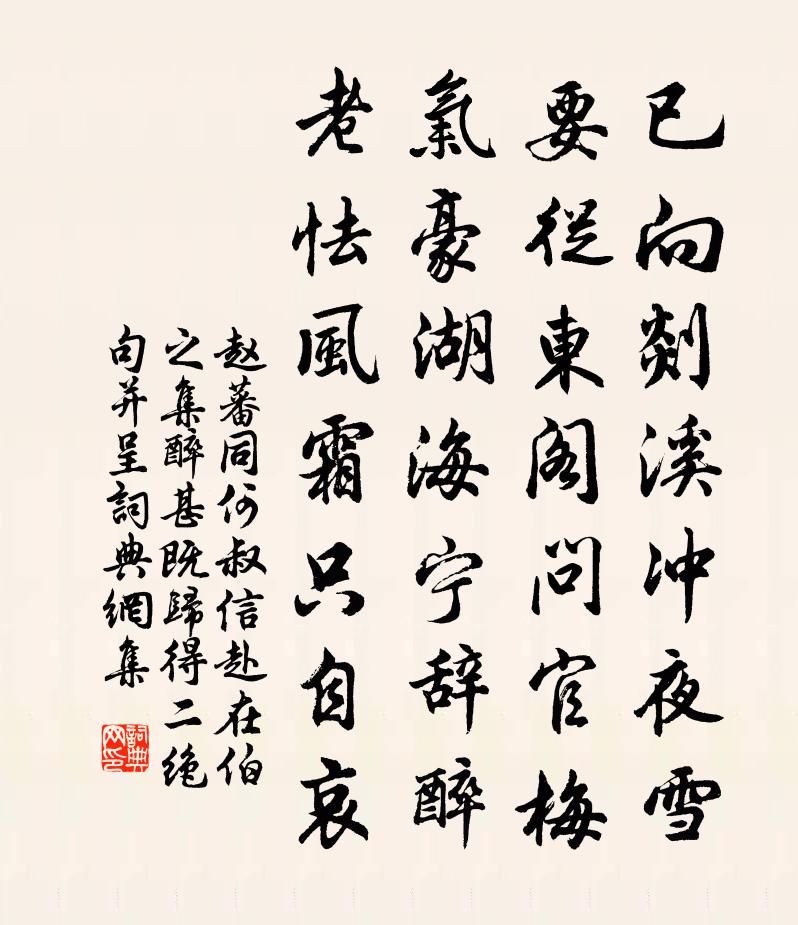 已向剡溪冲夜雪
要從東閣問官梅
氣豪湖海宁辞醉
老怯風霜只自哀
赵蕃同何叔信赴在伯
之集醉甚既歸得二绝
句并呈詞典網集
詞典网印